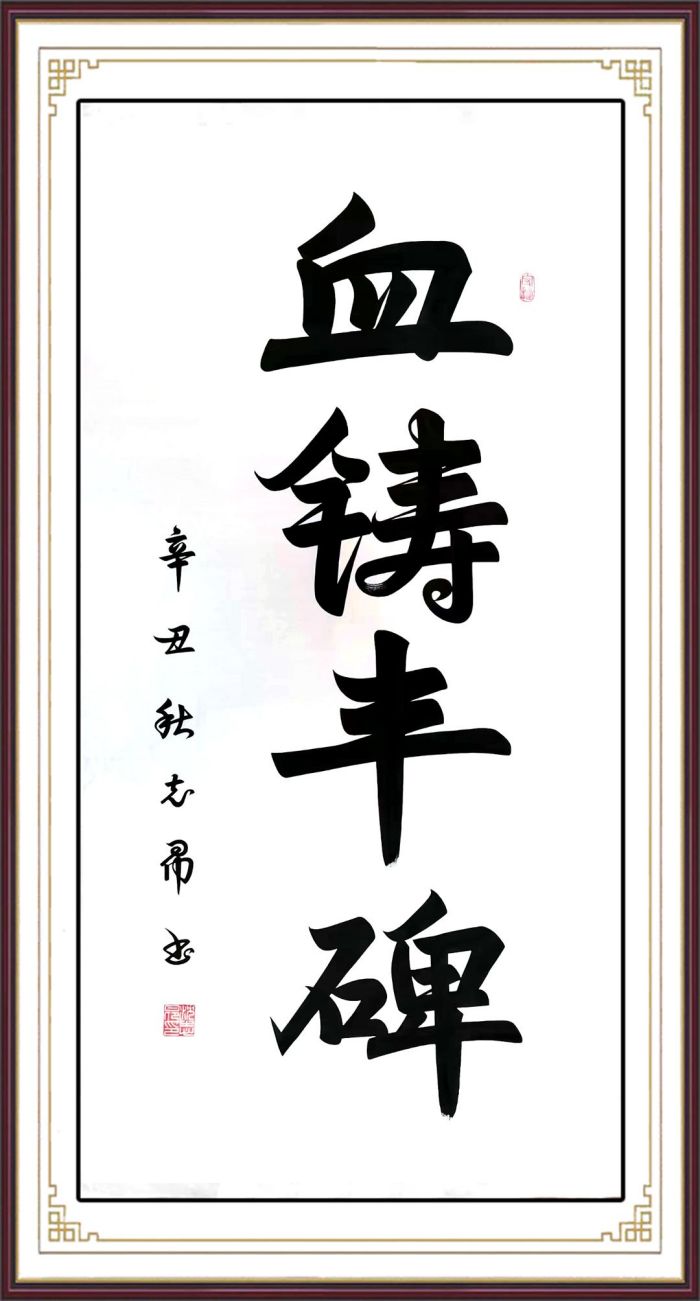 血铸丰碑
辛丑秋志昂书